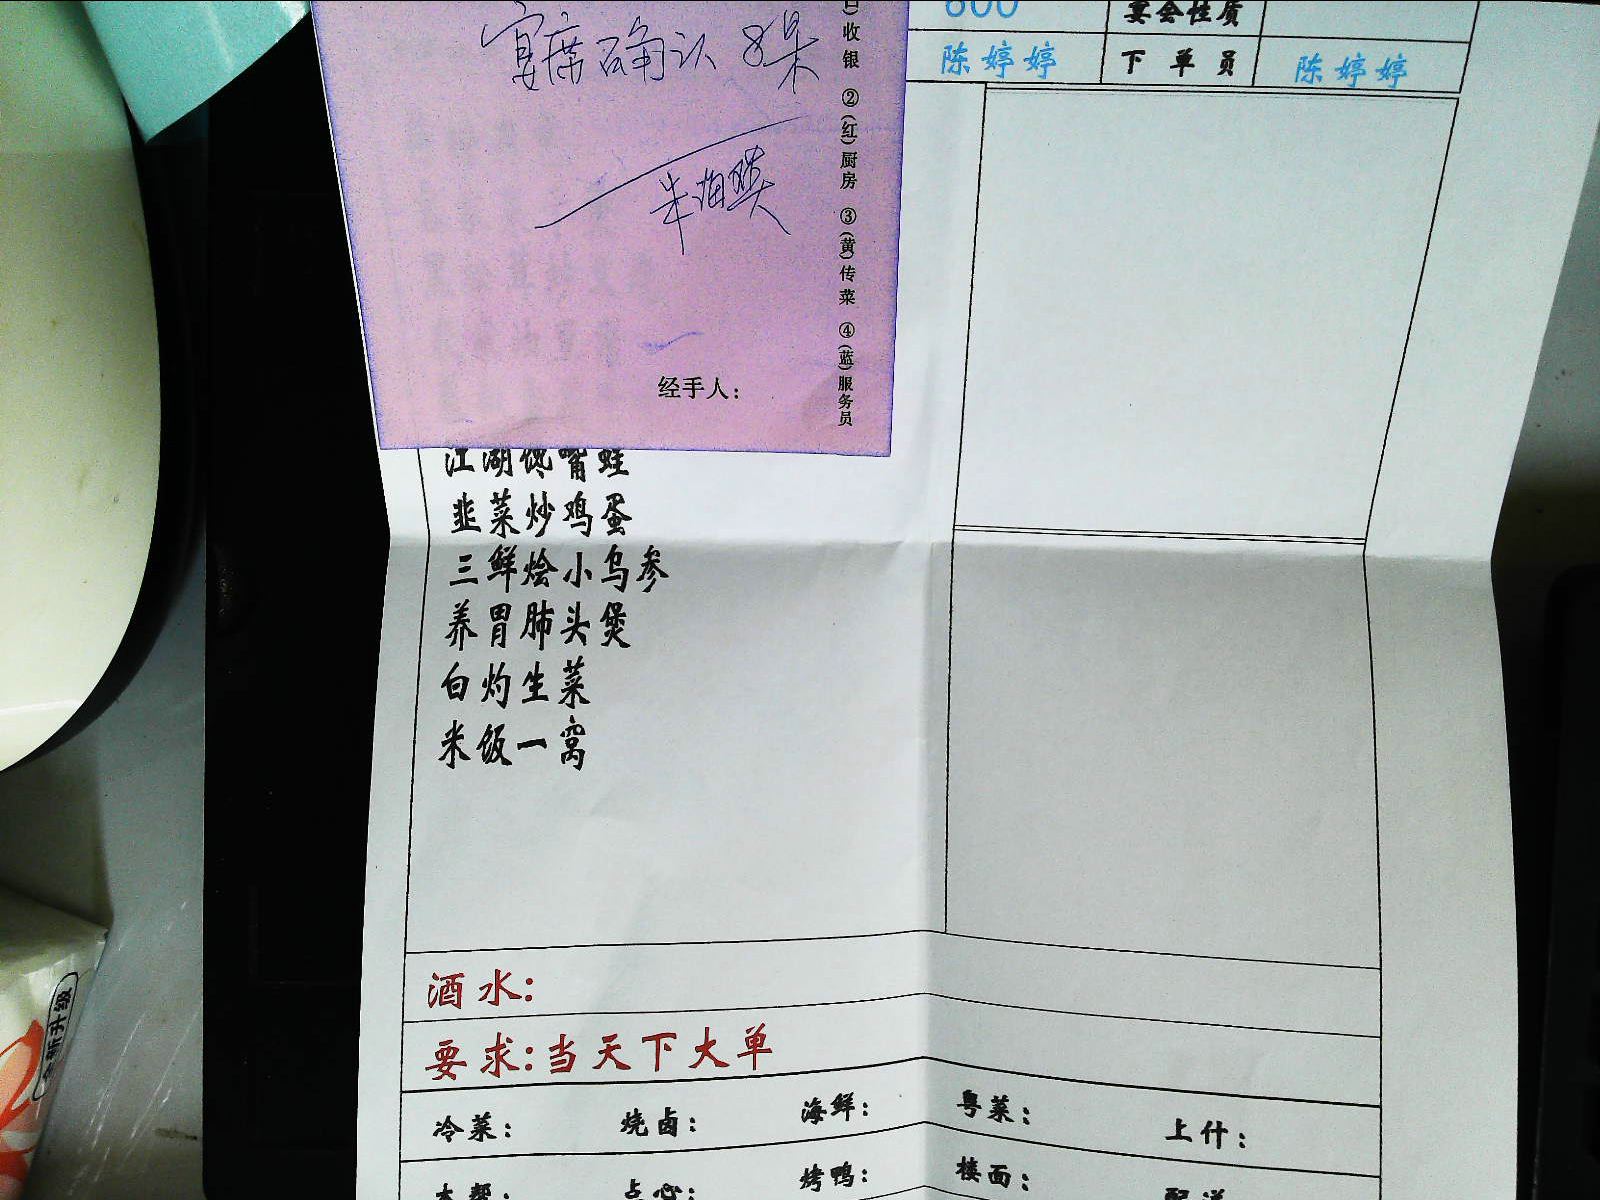 600
宴会性质
陈婷婷
下单员
陈婷婷
宴席确认8桌
收银 ②(红)厨房 ③(黄)传菜 ④(蓝)服务员
经手人:
江湖馋嘴蛙
韭菜炒鸡蛋
三鲜烩小乌参
养胃肺头煲
白灼生菜
米饭一窝
酒水:
要求:当天下大单
冷菜: 烧卤: 海鲜: 粤菜: 上什:
本帮: 点心: 烤鸭: 楼面: 配送
全新升级